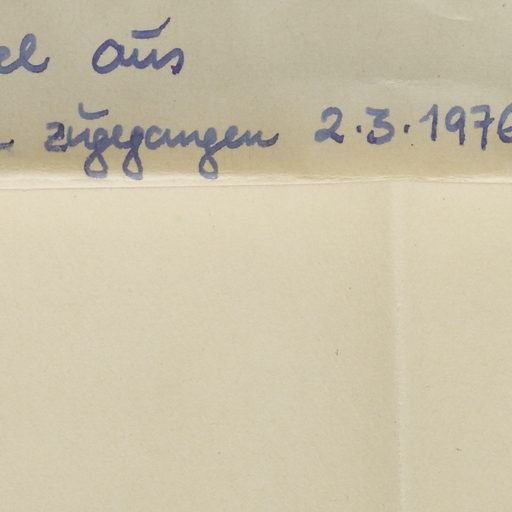 aus
zugegangen 2.3.1976